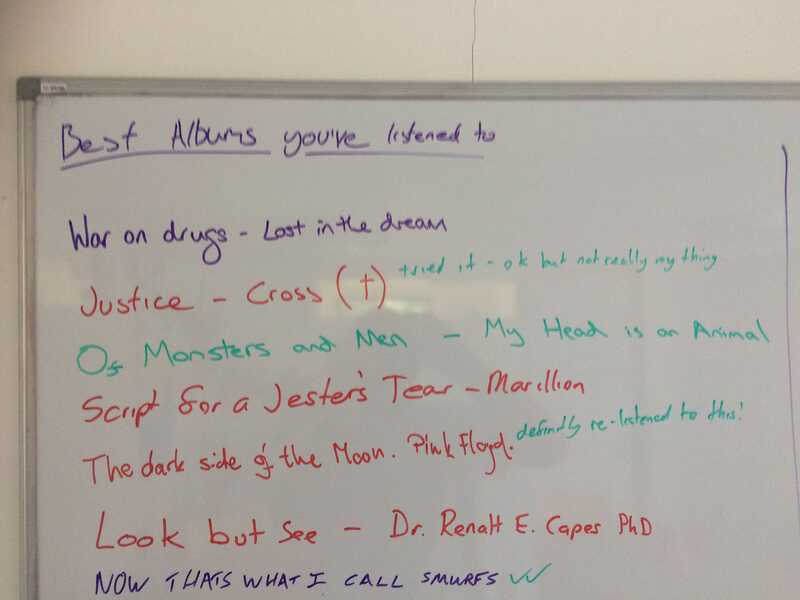 Best Albums you've listened to
War on drugs - Lost in the dream
Justice - Cross (†) tried it - ok but not really my thing
Of Monsters and Men - My Head is an Animal
Script for a Jester's Tear - Marillion
The dark side of the Moon. Pink Floyd. definitly re-listened to this!
Look but See - Dr. Renatt E. Capes PhD
NOW THATS WHAT I CALL SMURFS ✓✓